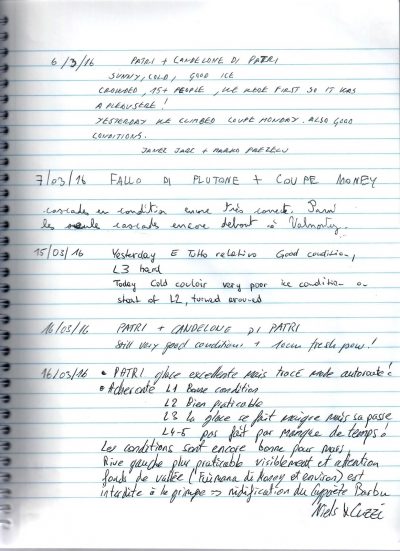 6/3/16 PATRI + CANDELONE DI PATRI
SUNNY, COLD, GOOD ICE
CROWDED, 15+ PEOPLE, WE WERE FIRST SO IT WAS
A PLEASURE!
YESTERDAY WE CLIMBED COUPE MONDAY. ALSO GOOD
CONDITIONS.
+ MARKO PREZELJ
7/03/16 FALLO DI PLUTONE + COUPE MONEY
cascades en condition encore très correcte. Parmi
les seules cascades encore debout à Valnontey.
15/03/16 Yesterday E Tutto relativo Good condition,
L3 hard
Today Cold couloir very poor ice condition on
start of L2, turned around
16/03/16 PATRI + CANDELONE DI PATRI
Still very good conditions + 10cm fresh pow!
16/03/16 • PATRI glace excellente mais TRACE mode autoroute!
• L1 Bonne condition
L2 Bien praticable
L3 la glace se fait maigre mais sa passe
L4-5 pas fait par manque de temps!
Les conditions sont encore bonne pour mars,
Rive gauche plus praticable visiblement et attention
fonds de vallée ( de Money et environ) est
interdite à la grimpe → nidification du Gypaète Barbu
Niels &